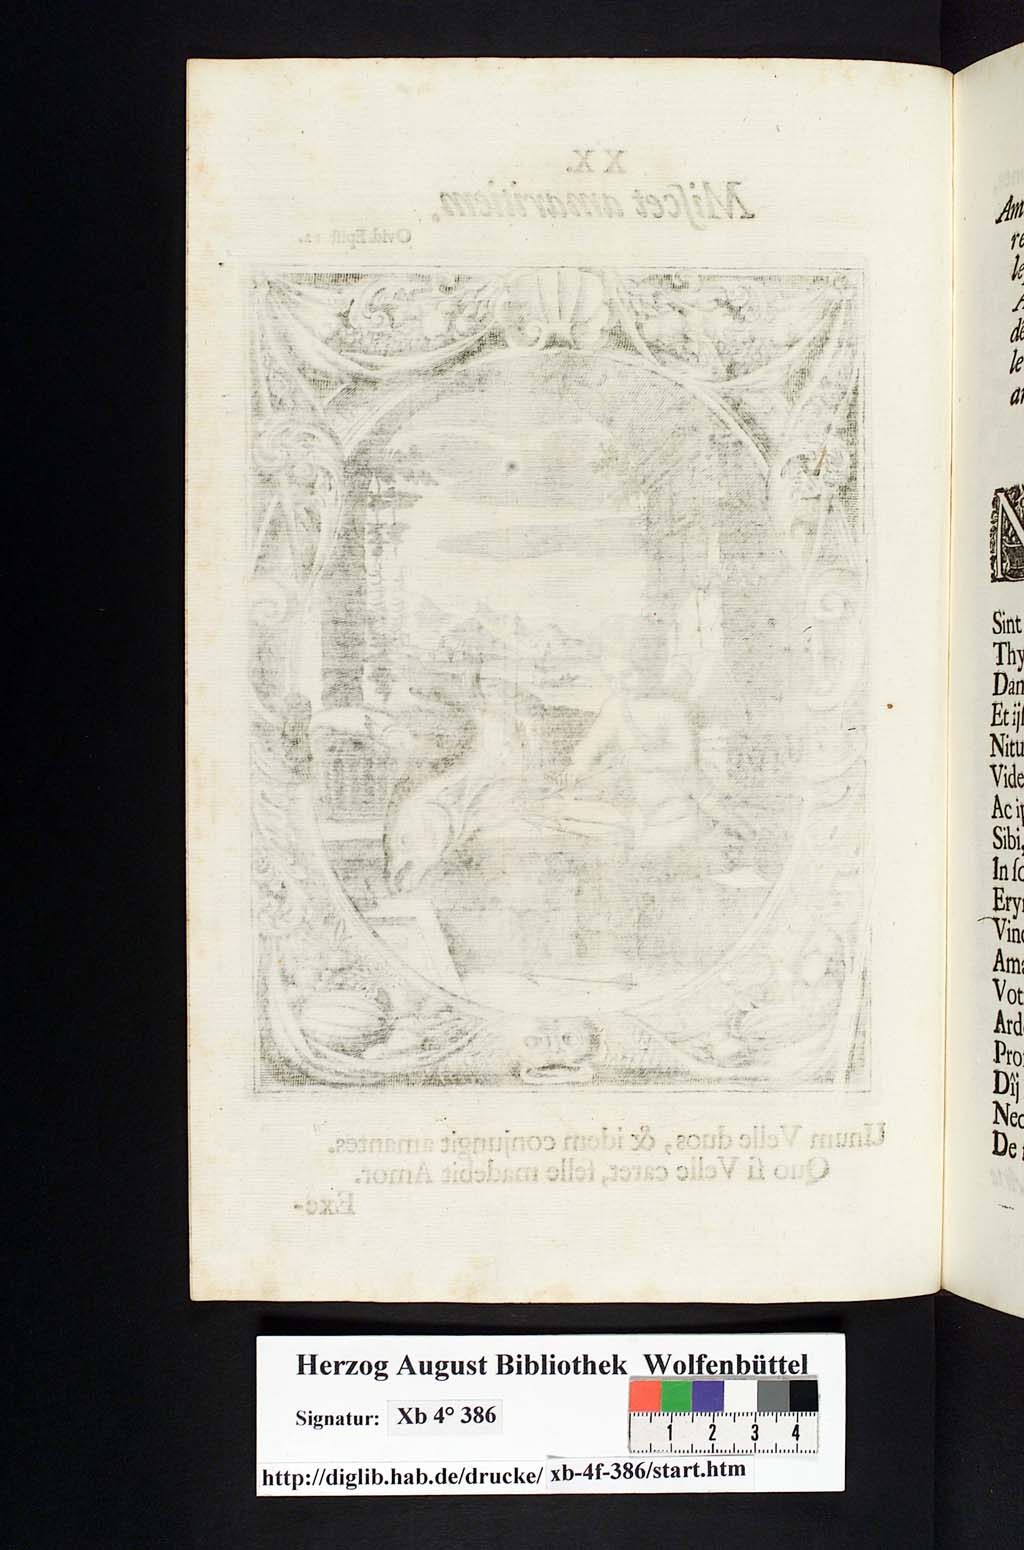 XX.
Miſcet amaritiem.
Ovid. Epiſt.
Unum Velle duos, & idem conjungit amantes.
Quo ſi Velle caret, felle madebit Amor.
Exe-
Am
re
le
de
le
N
Sint
Thy
Dan
Nitu
Vide
Sibi,
Vinc
Ama
Vot
Ard
Dîj
Nec
De
Herzog August Bibliothek Wolfenbüttel
Signatur: Xb 4° 386
1 2 3 4
http://diglib.hab.de/drucke/ xb-4f-386/start.htm